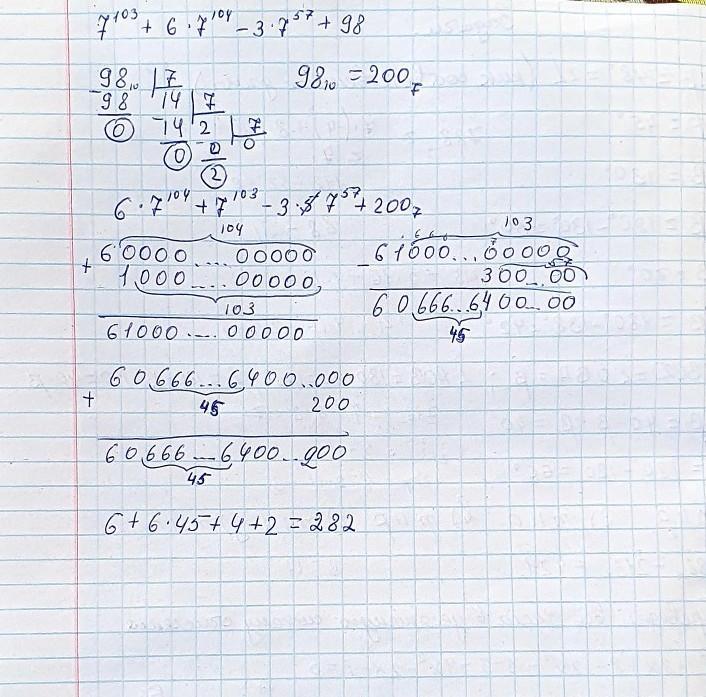 7^103 + 6 · 7^104 − 3 · 7^57 + 98
98₁₀ | 7
−98 14 | 7
0 −14 2 | 7
0 −0 0
2
98₁₀ = 200₇
6 · 7^104 + 7^103 − 3 · 7^57 + 200₇
104
60000....00000
+
1000....00000
103
61000....00000
103
6 6 6
−61000...00000
57
300...00
60666...6400...00
45
60666...6400..000
+
45
200
60666...6400..200
45
6 + 6·45 + 4 + 2 = 282